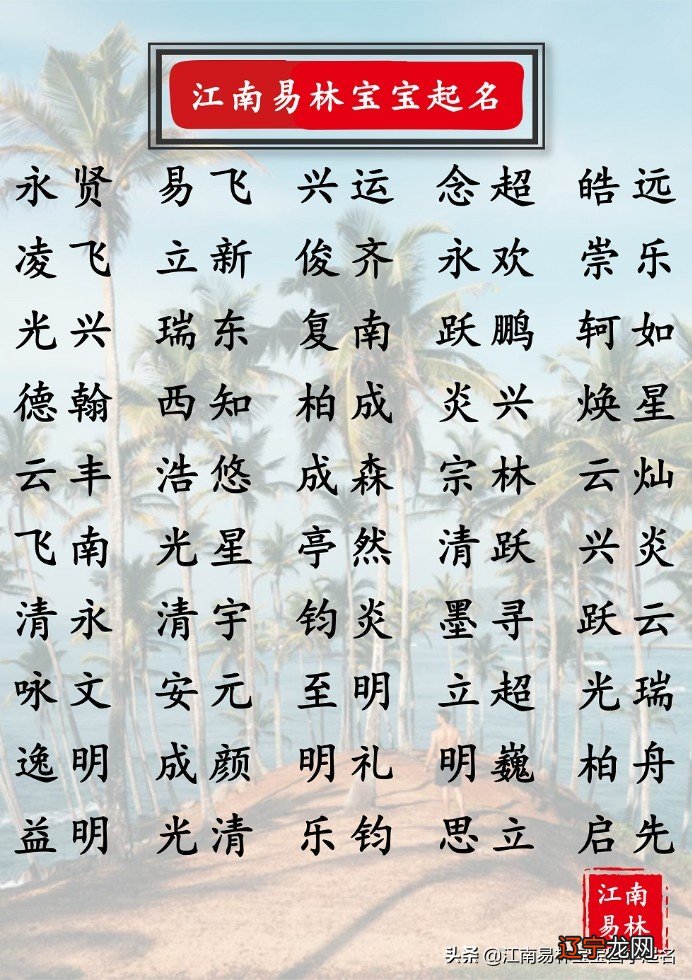 江南易林宝宝起名
永贤 易飞 兴运 念超 皓远
凌飞 立新 俊齐 永欢 崇乐
光兴 瑞东 复南 跃鹏 轲如
德翰 西知 柏成 炎兴 焕星
云丰 浩悠 成森 宗林 云灿
飞南 光星 亭然 清跃 兴炎
清永 清宇 钧炎 墨寻 跃云
咏文 安元 至明 立超 光瑞
逸明 成颜 明礼 明巍 柏舟
益明 光清 乐钧 思立 启先
江南
易林
辽宁龙网
头条 @江南易林宝宝
起名